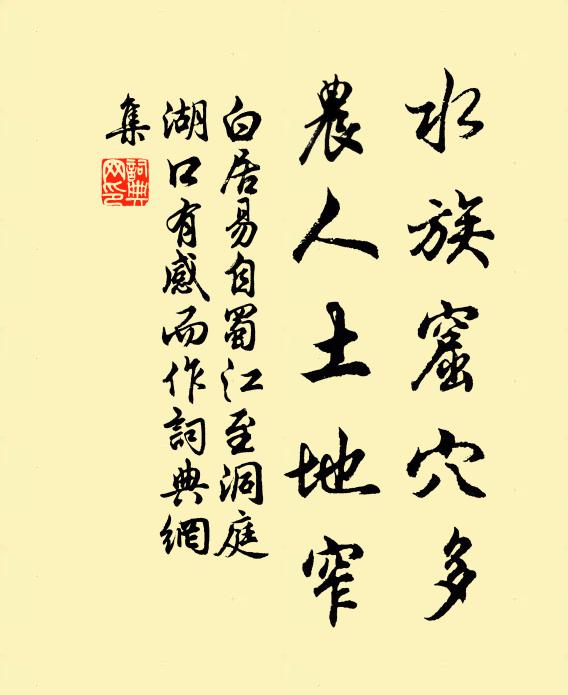 水族窟穴多
農人土地窄
白居易自蜀江至洞庭
湖口有感而作詞典網
集
詞典
网印